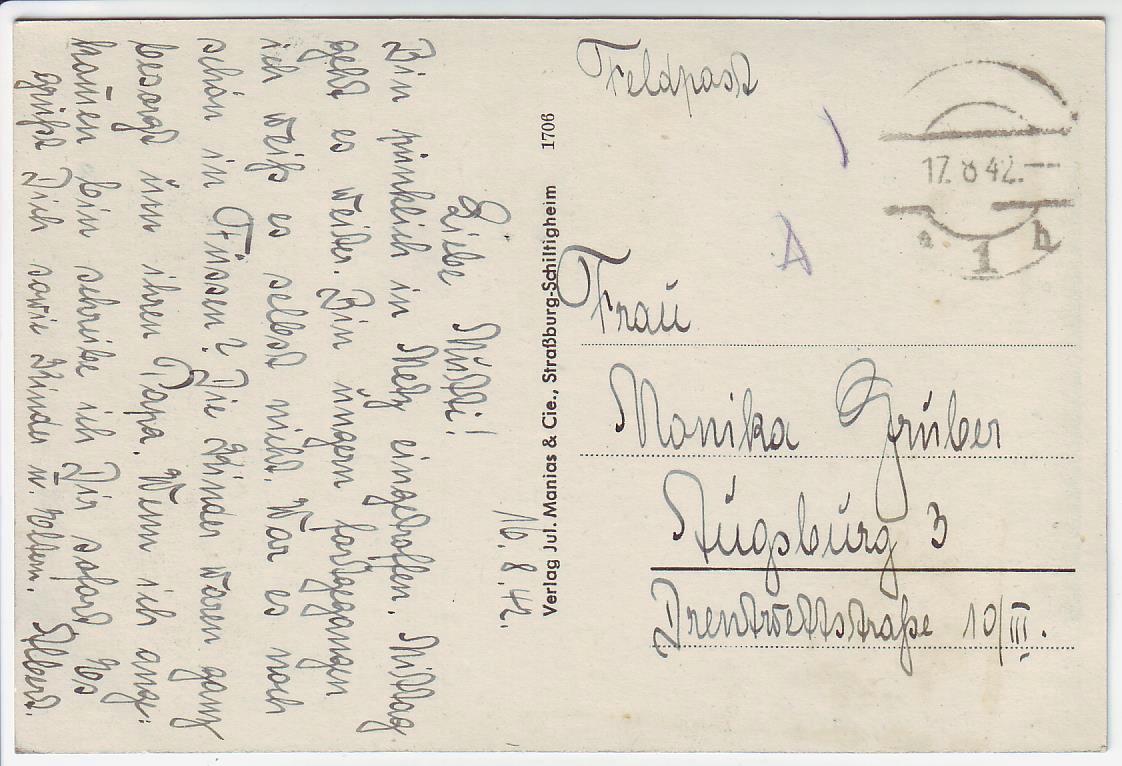 16.8.42.
Liebe Mutti!
Bin pünklich in Metz eingetroffen. Mittag
geht es weiter. Bin ungern fortgegangen
ich weiß es selbst nicht. War es noch
schön in Füssen? Die Kinder waren ganz
besorgt um ihren Papa. Wenn ich ange-
kom̄en bin schreibe ich Dir sofort. Es
grüßt Dich sowie Kinder u. Eltern. Albert.
Verlag Jul. Manias & Cie., Straßburg-Schiltigheim 1706
Feldpost
17.8.42.--
1 b
A
Frau
Monika Gruber
Augsburg 3
Drentwettstraße 10/III.